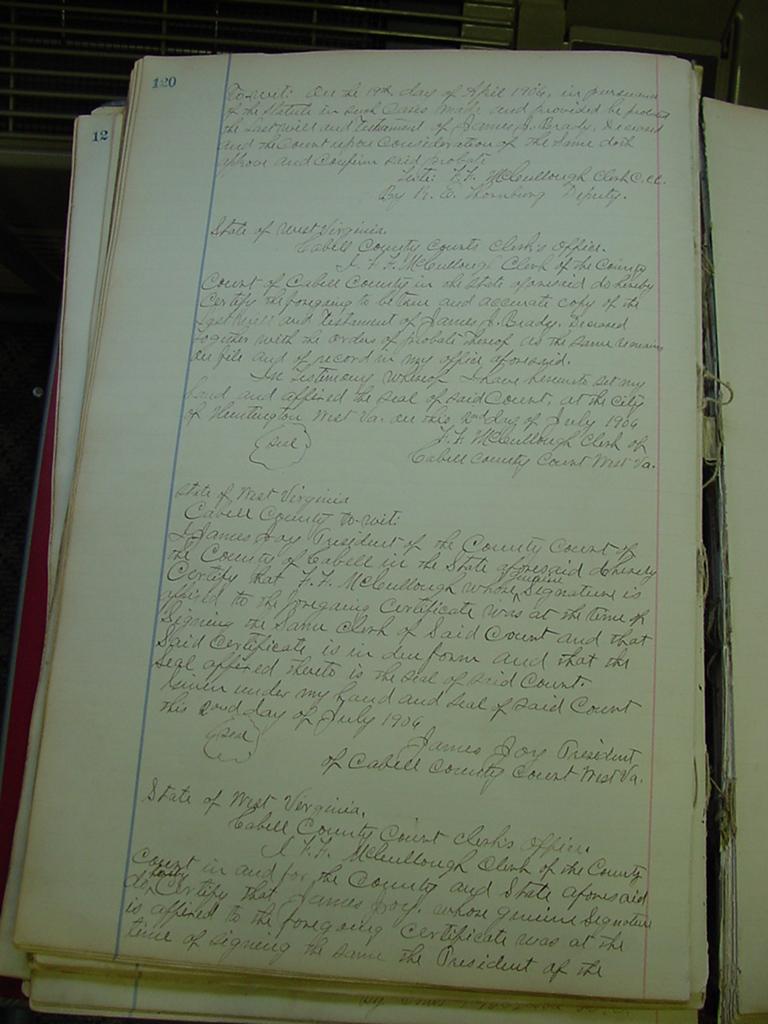 120
12
To-wit: On the 19th day of April 1906, in pursuance
of the Statute in such Cases made and provided be probated
the Last will and Testament of James J. Brady, Deceased
and the Court upon Consideration of the Same doth
approve and Confirm said probate
Teste: F.F. McCullough Clerk C.C.C.
By R. E. Thornburg Deputy.
State of West Virginia.
Cabell County Courts Clerk's Office.
I. F. F. McCullough Clerk of the County
Court of Cabell County in the State aforesaid do hereby
Certify the foregoing to be true and accurate copy of the
Last will and Testament of James J. Brady. Deceased
together with the orders of probate thereof as the same remains
on file and of record in my office aforesaid.
In Testimony whereof I have hereunto set my
hand and affixed the seal of said Court, at the City
of Huntington West Va. on this 2nd day of July 1906
Seal
F. F. McCullough Clerk of
Cabell County Court West Va.
State of West Virginia
Cabell County to-wit:
I James Joy President of the County Court of
the County of Cabell in the State aforesaid do hereby
Certify that F. F. McCullough whose genuine Signature is
affixed to the foregoing Certificate was at the time of
Signing the Same Clerk of Said Court and that
Said Certificate is in due form and that the
Seal affixed thereto is the seal of said Court
Given under my hand and seal of said Court
this 2nd day of July 1906
Seal
James Joy President
of Cabell County Court West Va.
State of West Virginia,
Cabell County Court Clerk's Office.
I F. F. McCullough Clerk of the County
Court in and for the County and State aforesaid
do hereby Certify that James Joy, whose genuine Signature
is affixed to the foregoing Certificate was at the
time of signing the same the President of the